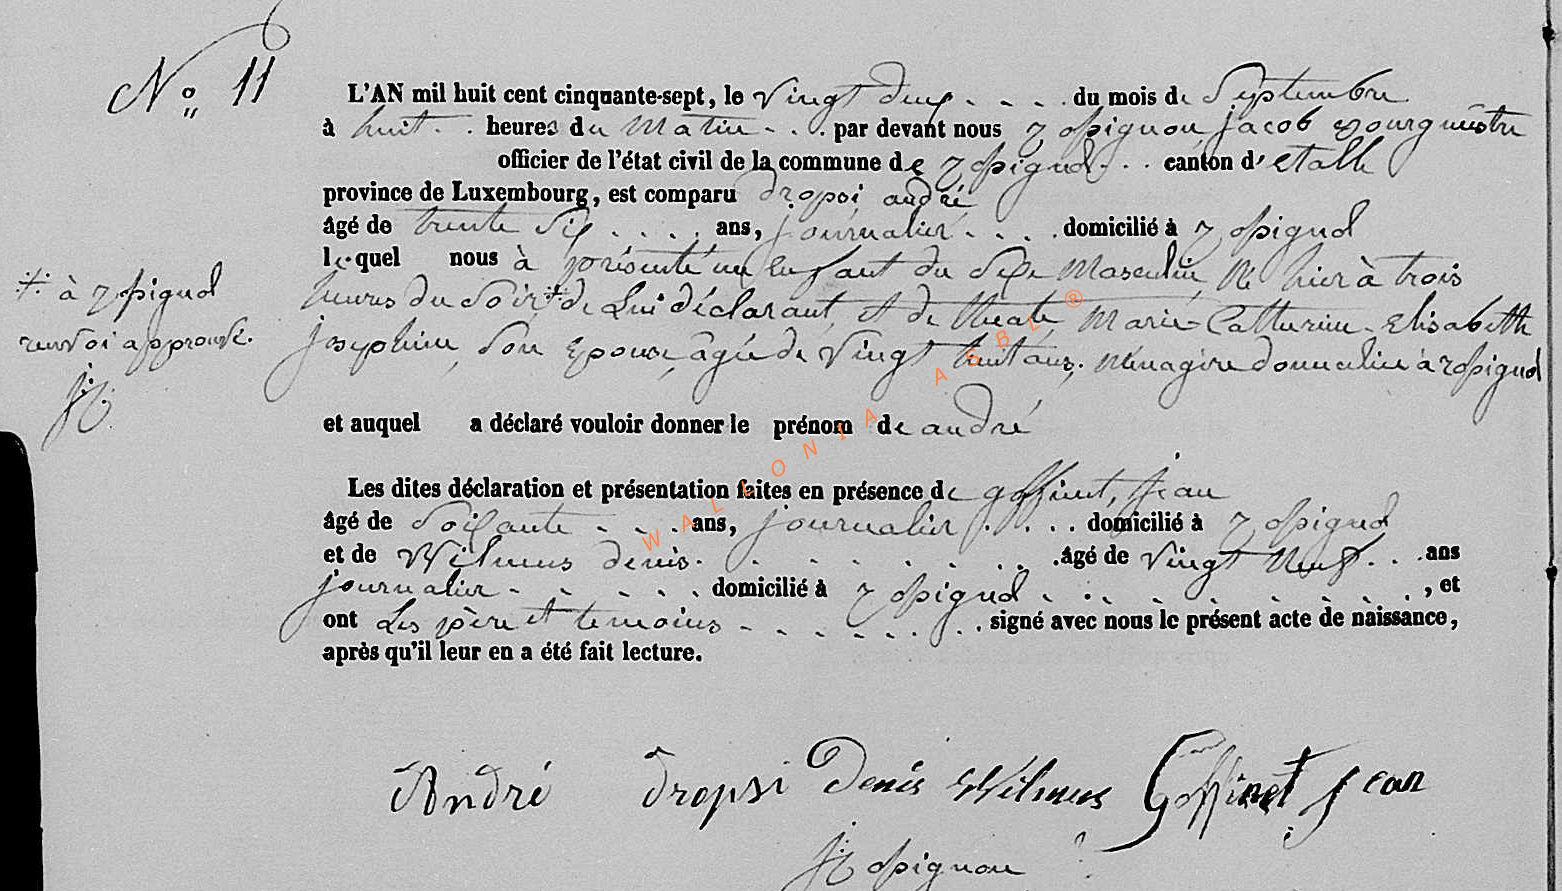 N° 11
L'AN mil huit cent cinquante-sept, le vingt deux du mois de Septembre
à huit heures du matin par devant nous Hospignou Jacob Bourgmestre
officier de l'état civil de la commune de canton d'etalle
province de Luxembourg, est comparu dropsi andré
âgé de trente Six ans, journalier domicilié à
lequel nous à présenté un Enfant du Sexe Masculin Né hier à trois
‡ à
heures du Soir ‡ de Lui déclarant et de Marie Catherine Elisabeth
renvoi approuvé.
josephine, Son Epouse, âgée de vingt huit ans, ménagère domiciliée à
et auquel a déclaré vouloir donner le prénom de andré
Les dites déclaration et présentation faites en présence de goffinet, jean
âgé de Soixante ans, journalier domicilié à
et de Wilmus denis âgé de vingt Neuf ans
journalier domicilié à , et
ont Les père et temoins signé avec nous le présent acte de naissance,
après qu'il leur en a été fait lecture.
WALLONIA ASBL ®
André Dropsi Denis Wilmus Goffinet Jean